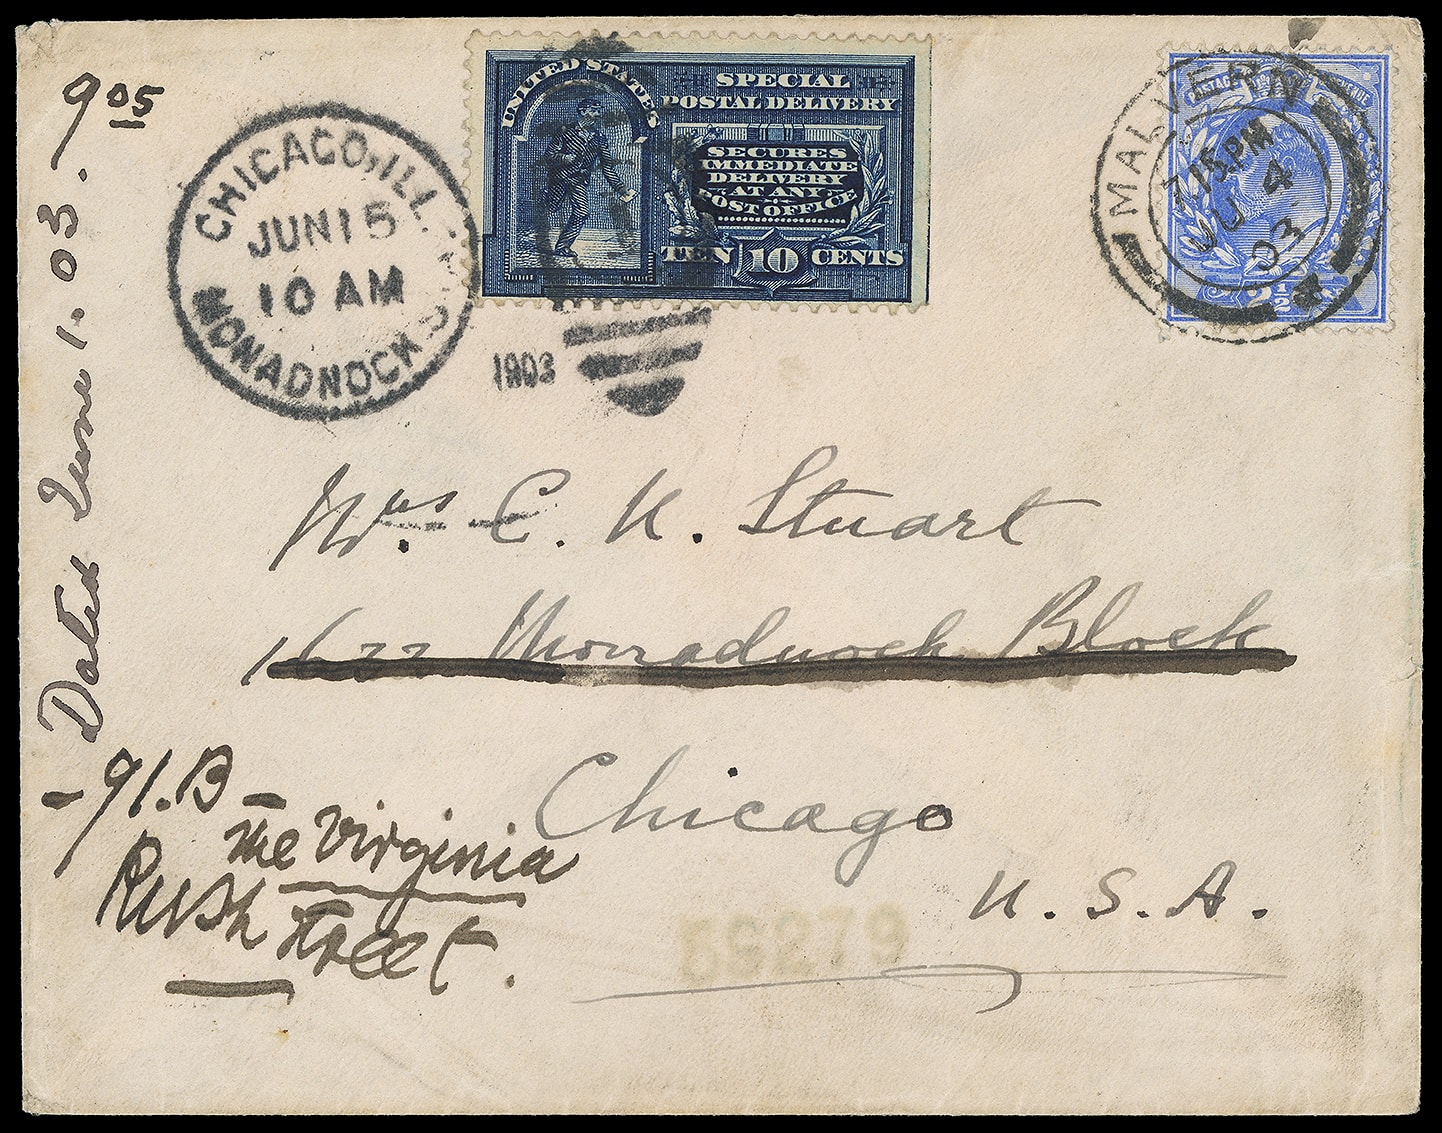 9 05
Dated June 1. 03.
CHICAGO, ILL.
JUN 15
10 AM
MONADNOCK
1903
UNITED STATES
SPECIAL
POSTAL DELIVERY
SECURES
IMMEDIATE
DELIVERY
AT ANY
POST OFFICE
TEN 10 CENTS
MALVERN
7.15 PM
JU 4
03
POSTAGE
2½
Mrs. C. K. Stuart
1677 Monadnock Block
Chicago
U. S. A.
- 91. B -
The Virginia
Rush Street.
59279